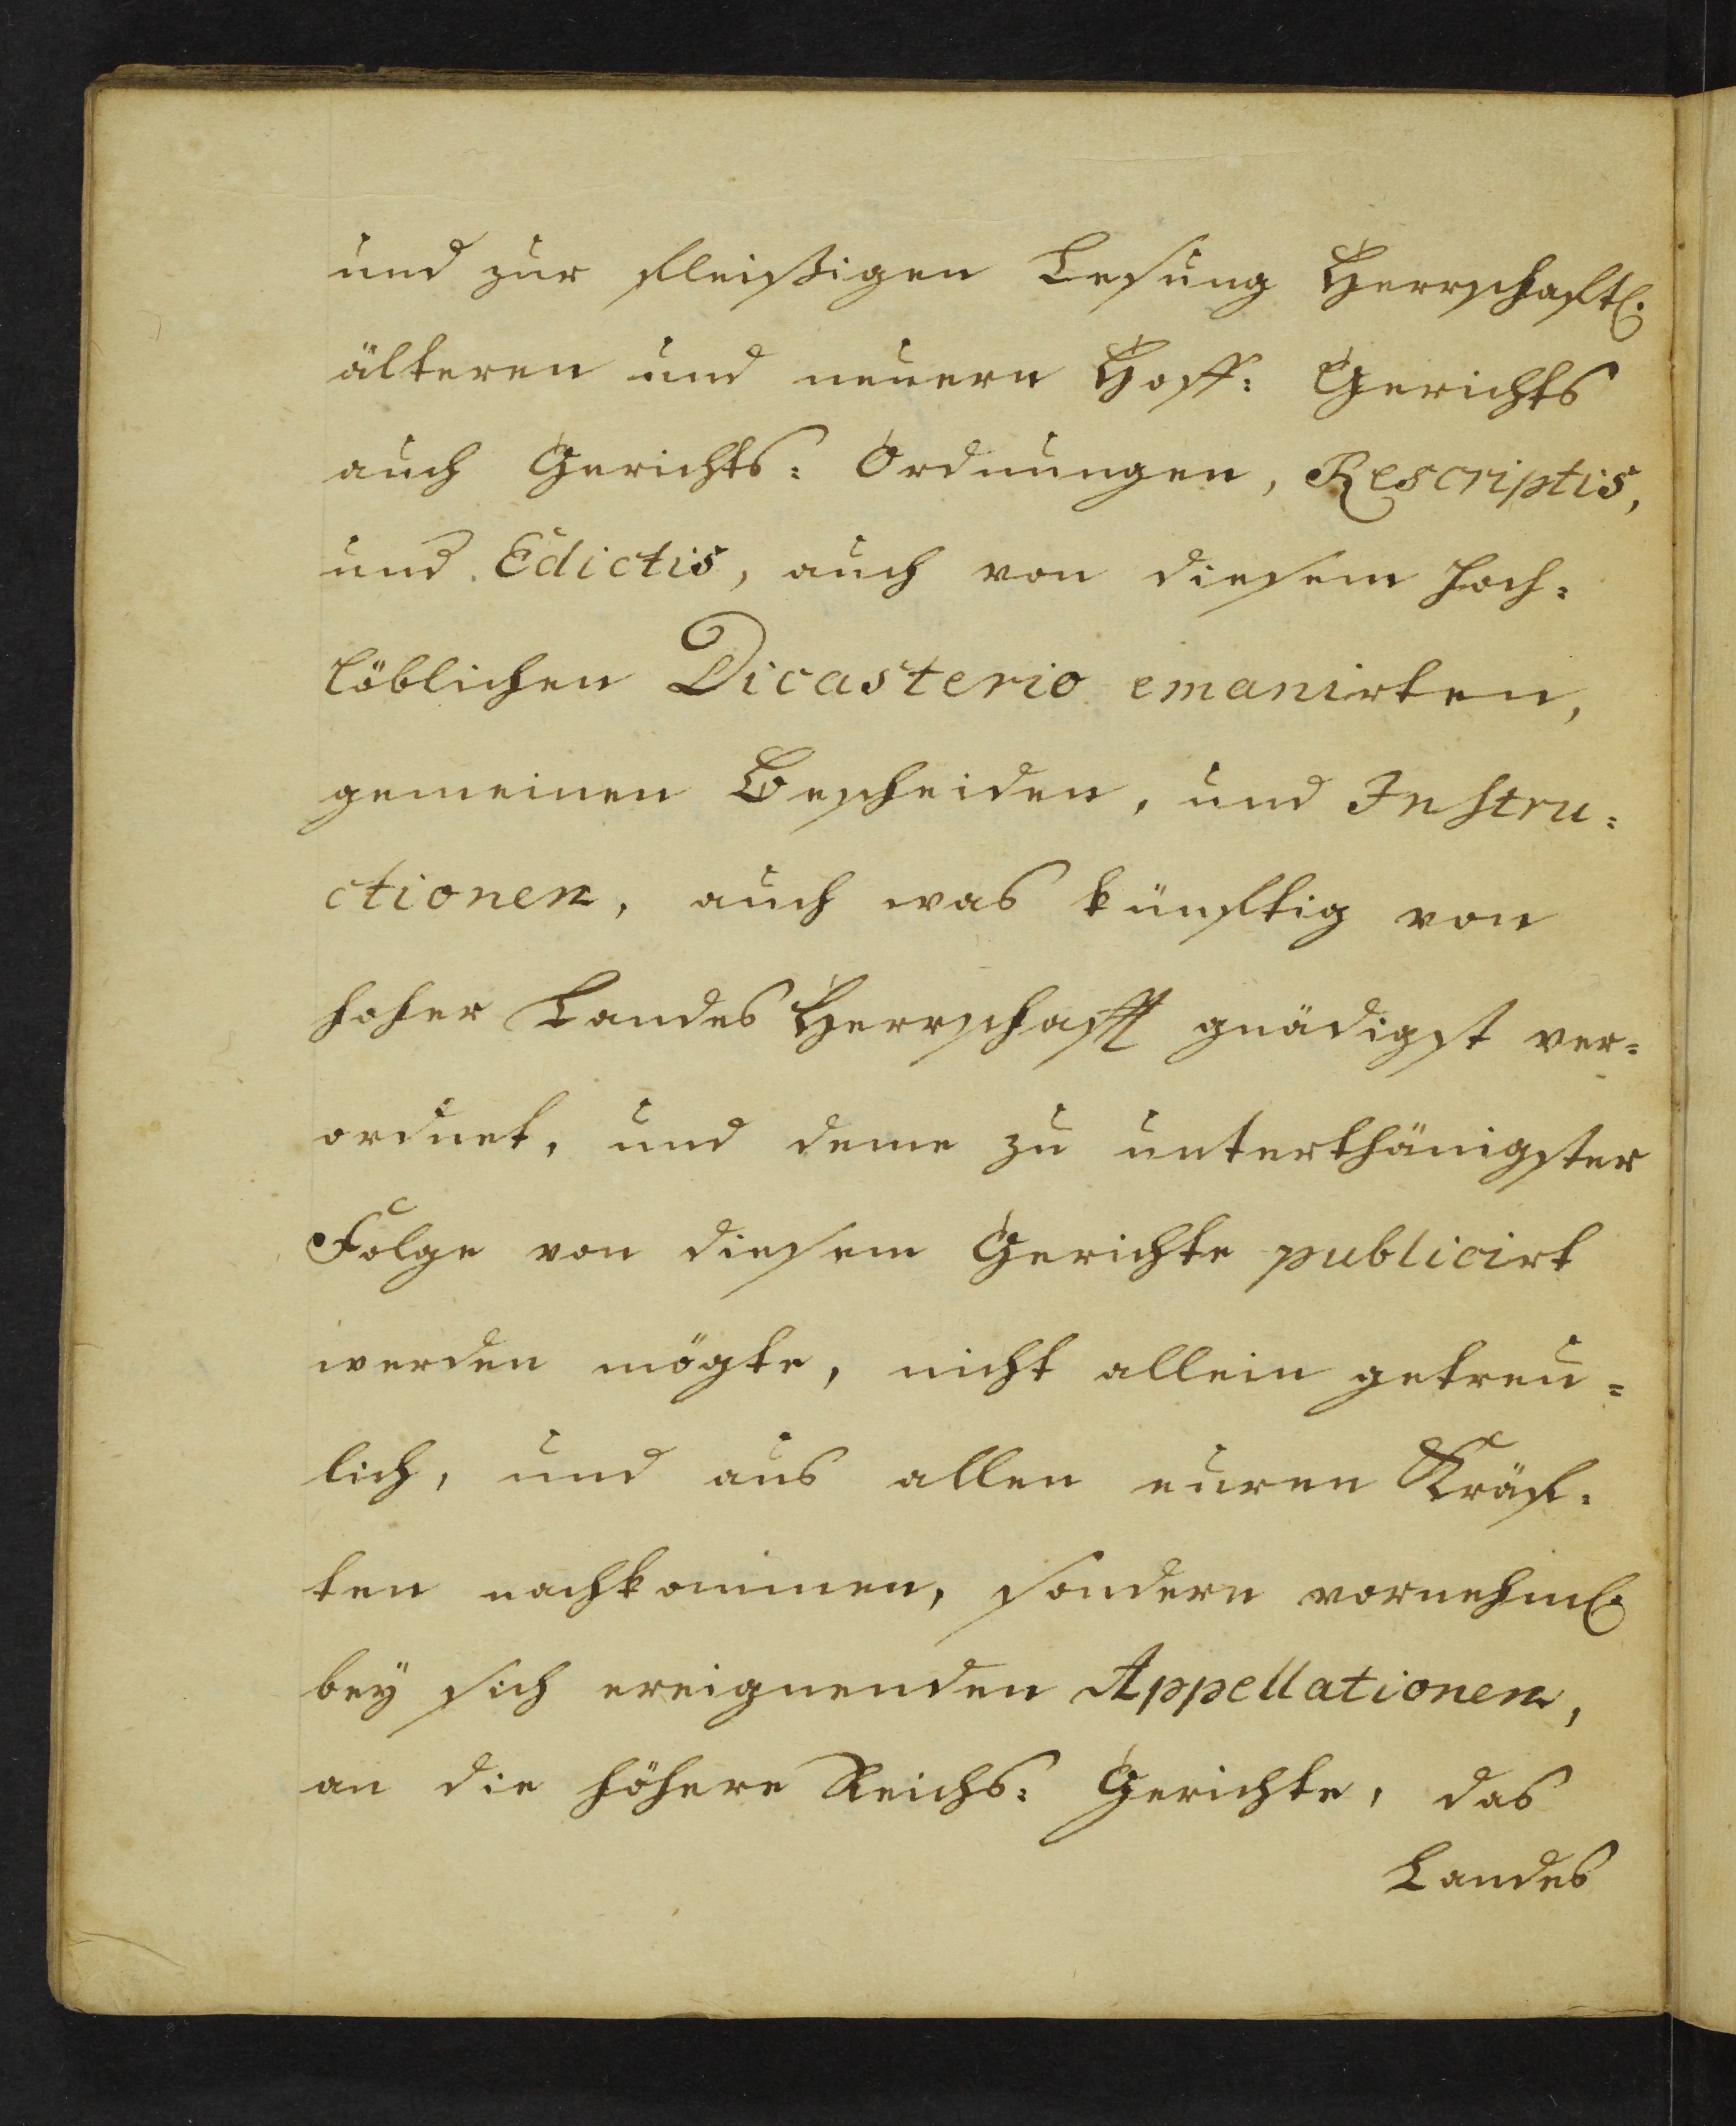 und zur fleißigen Lesung Herrschaftl.
älteren und neuern Hoff: Gerichts
auch Gerichts: Ordnungen, Rescriptis,
und Edictis, auch von diesem hoch=
löblichen Dicasterio emanirten,
gemeinen Bescheiden, und Instru=
ctionen, auch was künftig von
hoher Landes Herrschafft gnädigst ver=
ordnet, und deme zu unterthänigster
Folge von diesem Gerichte publicirt
werden mögte, nicht allein getreu=
lich, und aus allen euren Kräf=
ten nachkommen, sondern vornehml.
bey sich ereignenden Appellationen,
an die höhere Reichs: Gerichte, das
Landes